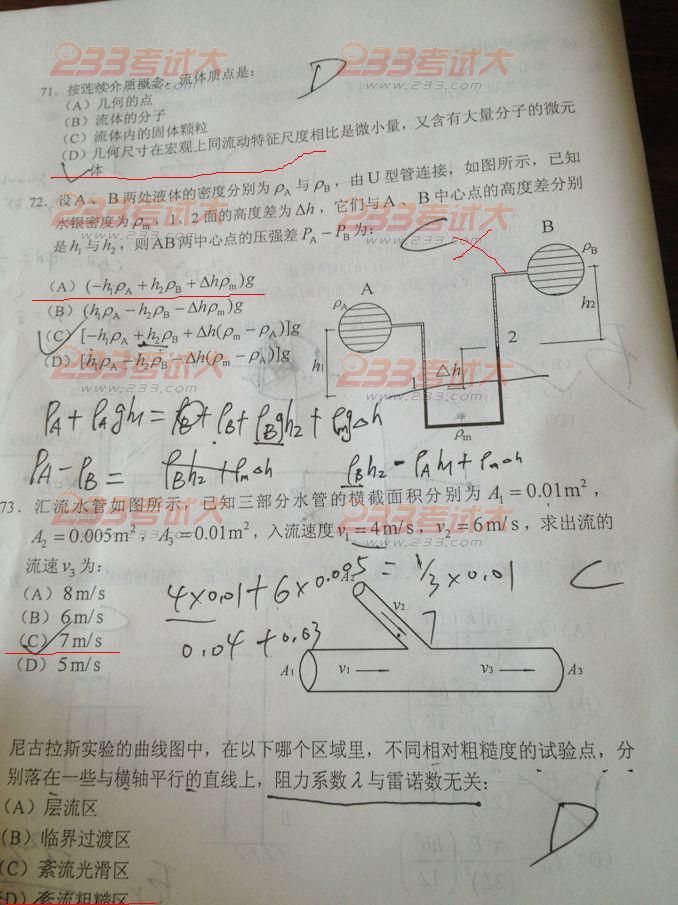 233考试大
www.233.com
71. 按连续介质概念，流体质点是： D
(A) 几何的点
(B) 流体的分子
(C) 流体内的固体颗粒
(D) 几何尺寸在宏观上同流动特征尺度相比是微小量，又含有大量分子的微元
体
72. 设A、B两处液体的密度分别为ρA与ρB，由U型管连接，如图所示，已知
水银密度为ρm，1、2面的高度差为Δh，它们与A、B中心点的高度差分别
是h1与h2，则AB两中心点的压强差PA－PB为： C
(A) (－h1ρA＋h2ρB＋Δhρm)g
(B) (h1ρA－h2ρB－Δhρm)g
(C) [－h1ρA＋h2ρB＋Δh(ρm－ρA)]g
(D) [h1ρA－h2ρB－Δh(ρm－ρA)]g
A
B
ρA
ρB
h1
h2
1
2
Δh
ρm
PA + ρAgh1 = PB + ρBgh2 + ρmgΔh
PA - PB = ρBh2 + ρmΔh ρBh2 - ρAh1 + ρmΔh
73. 汇流水管如图所示，已知三部分水管的横截面积分别为A1＝0.01m²，
A2＝0.005m²，A3＝0.01m²，入流速度v1＝4m/s，v2＝6m/s，求出流的
流速v3为： C
(A) 8m/s
(B) 6m/s
(C) 7m/s
(D) 5m/s
4×0.01+6×0.005=V3×0.01
0.04+0.03
7
A2
v2
A1
v1
v3
A3
尼古拉斯实验的曲线图中，在以下哪个区域里，不同相对粗糙度的试验点，分
别落在一些与横轴平行的直线上，阻力系数λ与雷诺数无关： D
(A) 层流区
(B) 临界过渡区
(C) 紊流光滑区
(D) 紊流粗糙区